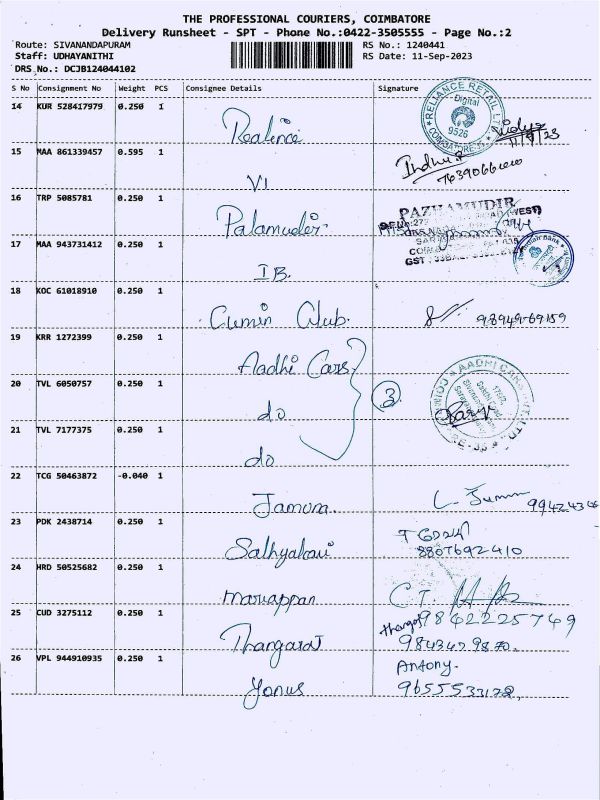 THE PROFESSIONAL COURIERS, COIMBATORE
Delivery Runsheet - SPT - Phone No.:0422-3505555 - Page No.:2
Route: SIVANANDAPURAM RS No.: 1240441
Staff: UDHAYANITHI RS Date: 11-Sep-2023
DRS No.: DCJB124044102
S No Consignment No Weight PCS Consignee Details Signature
14 KUR 528417979 0.250 1
Realince
RELIANCE RETAIL LTD
Digital
9526
COIMBATORE
11/9/23
15 MAA 861339457 0.595 1
VI
Indhu.P
16 TRP 5085781 0.250 1
Palamudir
PAZHAMUDIR
17 MAA 943731412 0.250 1
IB
GST
Indian Bank
18 KOC 61018910 0.250 1
Cumin Club
98949-69159
19 KRR 1272399 0.250 1
Aadhi Cars
20 TVL 6050757 0.250 1
do
3
AADHI CARS
21 TVL 7177375 0.250 1
do
22 TCG 50463872 -0.040 1
Jamuna
23 PDK 2438714 0.250 1
Sathyakavi
8807692410
24 HRD 50525682 0.250 1
Mariappan
C.T.
9842225749
25 CUD 3275112 0.250 1
Thangaraj
26 VPL 944910935 0.250 1
Yonus
Antony.